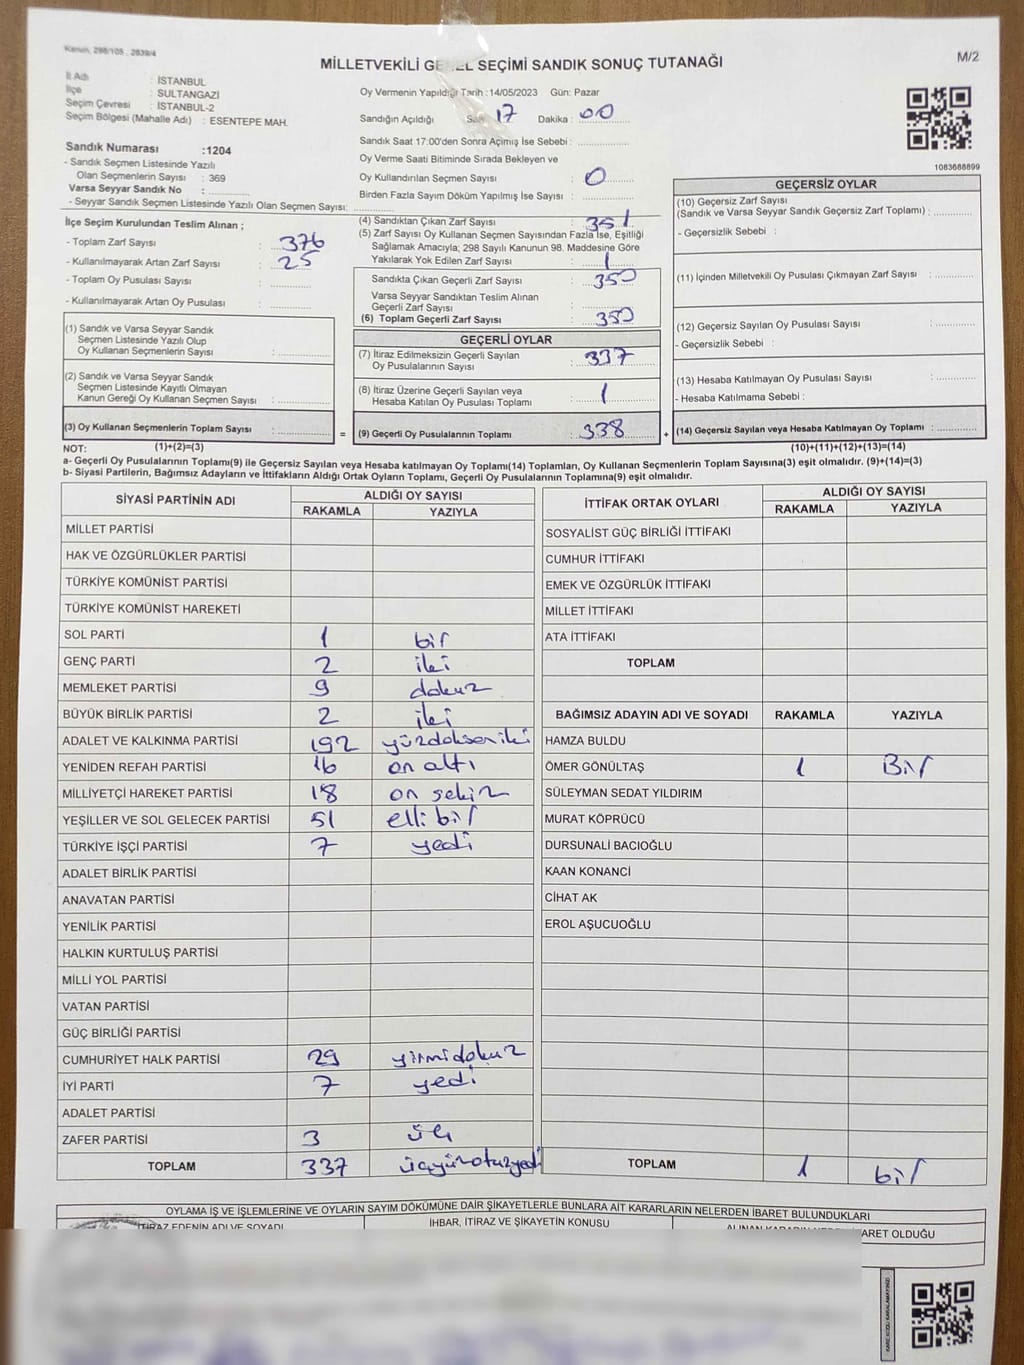 Kanun, 298/105 , 2839/4
M/2
MİLLETVEKİLİ GENEL SEÇİMİ SANDIK SONUÇ TUTANAĞI
İl Adı : İSTANBUL
İlçe : SULTANGAZİ
Seçim Çevresi : İSTANBUL-2
Seçim Bölgesi (Mahalle Adı) : ESENTEPE MAH.
Sandık Numarası :1204
- Sandık Seçmen Listesinde Yazılı
Olan Seçmenlerin Sayısı : 369
Varsa Seyyar Sandık No :
- Seyyar Sandık Seçmen Listesinde Yazılı Olan Seçmen Sayısı:
İlçe Seçim Kurulundan Teslim Alınan ;
- Toplam Zarf Sayısı : 376
- Kullanılmayarak Artan Zarf Sayısı : 25
- Toplam Oy Pusulası Sayısı :
- Kullanılmayarak Artan Oy Pusulası :
(1) Sandık ve Varsa Seyyar Sandık
Seçmen Listesinde Yazılı Olup
Oy Kullanan Seçmenlerin Sayısı :
(2) Sandık ve Varsa Seyyar Sandık
Seçmen Listesinde Kayıtlı Olmayan
Kanun Gereği Oy Kullanan Seçmen Sayısı :
(3) Oy Kullanan Seçmenlerin Toplam Sayısı :
(1)+(2)=(3)
Oy Vermenin Yapıldığı Tarih : 14/05/2023 Gün: Pazar
Sandığın Açıldığı Saat 17 Dakika : 00
Sandık Saat 17:00'den Sonra Açımış İse Sebebi :
Oy Verme Saati Bitiminde Sırada Bekleyen ve
Oy Kullandırılan Seçmen Sayısı : 0
Birden Fazla Sayım Döküm Yapılmış İse Sayısı :
(4) Sandıktan Çıkan Zarf Sayısı : 351
(5) Zarf Sayısı Oy Kullanan Seçmen Sayısından Fazla İse, Eşitliği
Sağlamak Amacıyla; 298 Sayılı Kanunun 98. Maddesine Göre
Yakılarak Yok Edilen Zarf Sayısı : 1
Sandıkta Çıkan Geçerli Zarf Sayısı : 350
Varsa Seyyar Sandıktan Teslim Alınan
Geçerli Zarf Sayısı :
(6) Toplam Geçerli Zarf Sayısı : 350
GEÇERLİ OYLAR
(7) İtiraz Edilmeksizin Geçerli Sayılan
Oy Pusulalarının Sayısı : 337
(8) İtiraz Üzerine Geçerli Sayılan veya
Hesaba Katılan Oy Pusulası Toplamı : 1
= (9) Geçerli Oy Pusulalarının Toplamı : 338 +
1083688899
GEÇERSİZ OYLAR
(10) Geçersiz Zarf Sayısı
(Sandık ve Varsa Seyyar Sandık Geçersiz Zarf Toplamı) :
- Geçersizlik Sebebi :
(11) İçinden Milletvekili Oy Pusulası Çıkmayan Zarf Sayısı :
(12) Geçersiz Sayılan Oy Pusulası Sayısı :
- Geçersizlik Sebebi :
(13) Hesaba Katılmayan Oy Pusulası Sayısı :
- Hesaba Katılmama Sebebi :
(14) Geçersiz Sayılan veya Hesaba Katılmayan Oy Toplamı :
(10)+(11)+(12)+(13)=(14)
NOT:
a- Geçerli Oy Pusulalarının Toplamı(9) ile Geçersiz Sayılan veya Hesaba katılmayan Oy Toplamı(14) Toplamları, Oy Kullanan Seçmenlerin Toplam Sayısına(3) eşit olmalıdır. (9)+(14)=(3)
b- Siyasi Partilerin, Bağımsız Adayların ve İttifakların Aldığı Ortak Oyların Toplamı, Geçerli Oy Pusulalarının Toplamına(9) eşit olmalıdır.
SİYASİ PARTİNİN ADI ALDIĞI OY SAYISI
RAKAMLA YAZIYLA
MİLLET PARTİSİ
HAK VE ÖZGÜRLÜKLER PARTİSİ
TÜRKİYE KOMÜNİST PARTİSİ
TÜRKİYE KOMÜNİST HAREKETİ
SOL PARTİ 1 bir
GENÇ PARTİ 2 iki
MEMLEKET PARTİSİ 9 dokuz
BÜYÜK BİRLİK PARTİSİ 2 iki
ADALET VE KALKINMA PARTİSİ 192 yüzdokseniki
YENİDEN REFAH PARTİSİ 16 on altı
MİLLİYETÇİ HAREKET PARTİSİ 18 on sekiz
YEŞİLLER VE SOL GELECEK PARTİSİ 51 elli bir
TÜRKİYE İŞÇİ PARTİSİ 7 yedi
ADALET BİRLİK PARTİSİ
ANAVATAN PARTİSİ
YENİLİK PARTİSİ
HALKIN KURTULUŞ PARTİSİ
MİLLİ YOL PARTİSİ
VATAN PARTİSİ
GÜÇ BİRLİĞİ PARTİSİ
CUMHURİYET HALK PARTİSİ 29 yirmidokuz
İYİ PARTİ 7 yedi
ADALET PARTİSİ
ZAFER PARTİSİ 3 üç
TOPLAM 337 üçyüzotuzyedi
İTTİFAK ORTAK OYLARI ALDIĞI OY SAYISI
RAKAMLA YAZIYLA
SOSYALİST GÜÇ BİRLİĞİ İTTİFAKI
CUMHUR İTTİFAKI
EMEK VE ÖZGÜRLÜK İTTİFAKI
MİLLET İTTİFAKI
ATA İTTİFAKI
TOPLAM
BAĞIMSIZ ADAYIN ADI VE SOYADI RAKAMLA YAZIYLA
HAMZA BULDU
ÖMER GÖNÜLTAŞ 1 Bir
SÜLEYMAN SEDAT YILDIRIM
MURAT KÖPRÜCÜ
DURSUNALİ BACIOĞLU
KAAN KONANCİ
CİHAT AK
EROL AŞUCUOĞLU
TOPLAM 1 bir
OYLAMA İŞ VE İŞLEMLERİNE VE OYLARIN SAYIM DÖKÜMÜNE DAİR ŞİKAYETLERLE BUNLARA AİT KARARLARIN NELERDEN İBARET BULUNDUKLARI
İTİRAZ EDENİN ADI VE SOYADI İHBAR, İTİRAZ VE ŞİKAYETİN KONUSU ALINAN KARARIN İBARET OLDUĞU